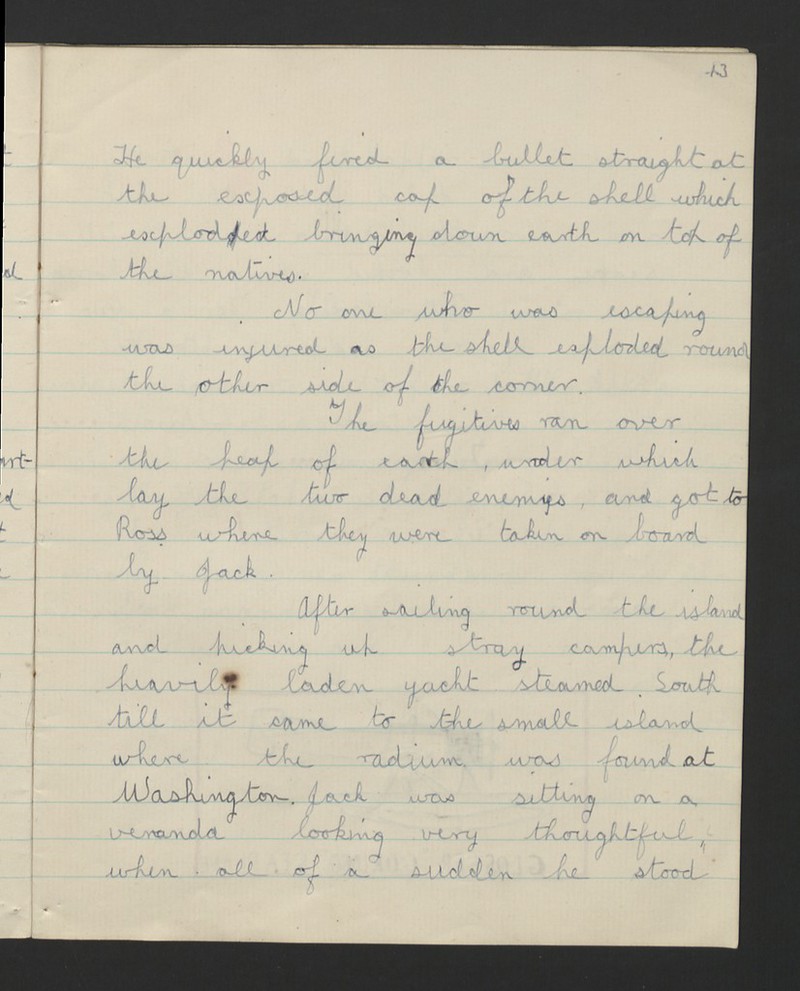 13
He quickly fired a bullet straight at
the exposed cap of the shell which
exploded bringing down earth on top of
the natives.
No one who was escaping
was injured as the shell exploded round
the other side of the corner.
The fugitives ran over
the heap of earth, under which
lay the two dead enemys, and got to
Ross where they were taken on board
by Jack.
After sailing round the island
and picking up stray campers, the
heavily laden yacht steamed South
till it came to the small island
where the radium was found at
Washington. Jack was sitting on a
veranda looking very thoughtful,
when all of a sudden he stood